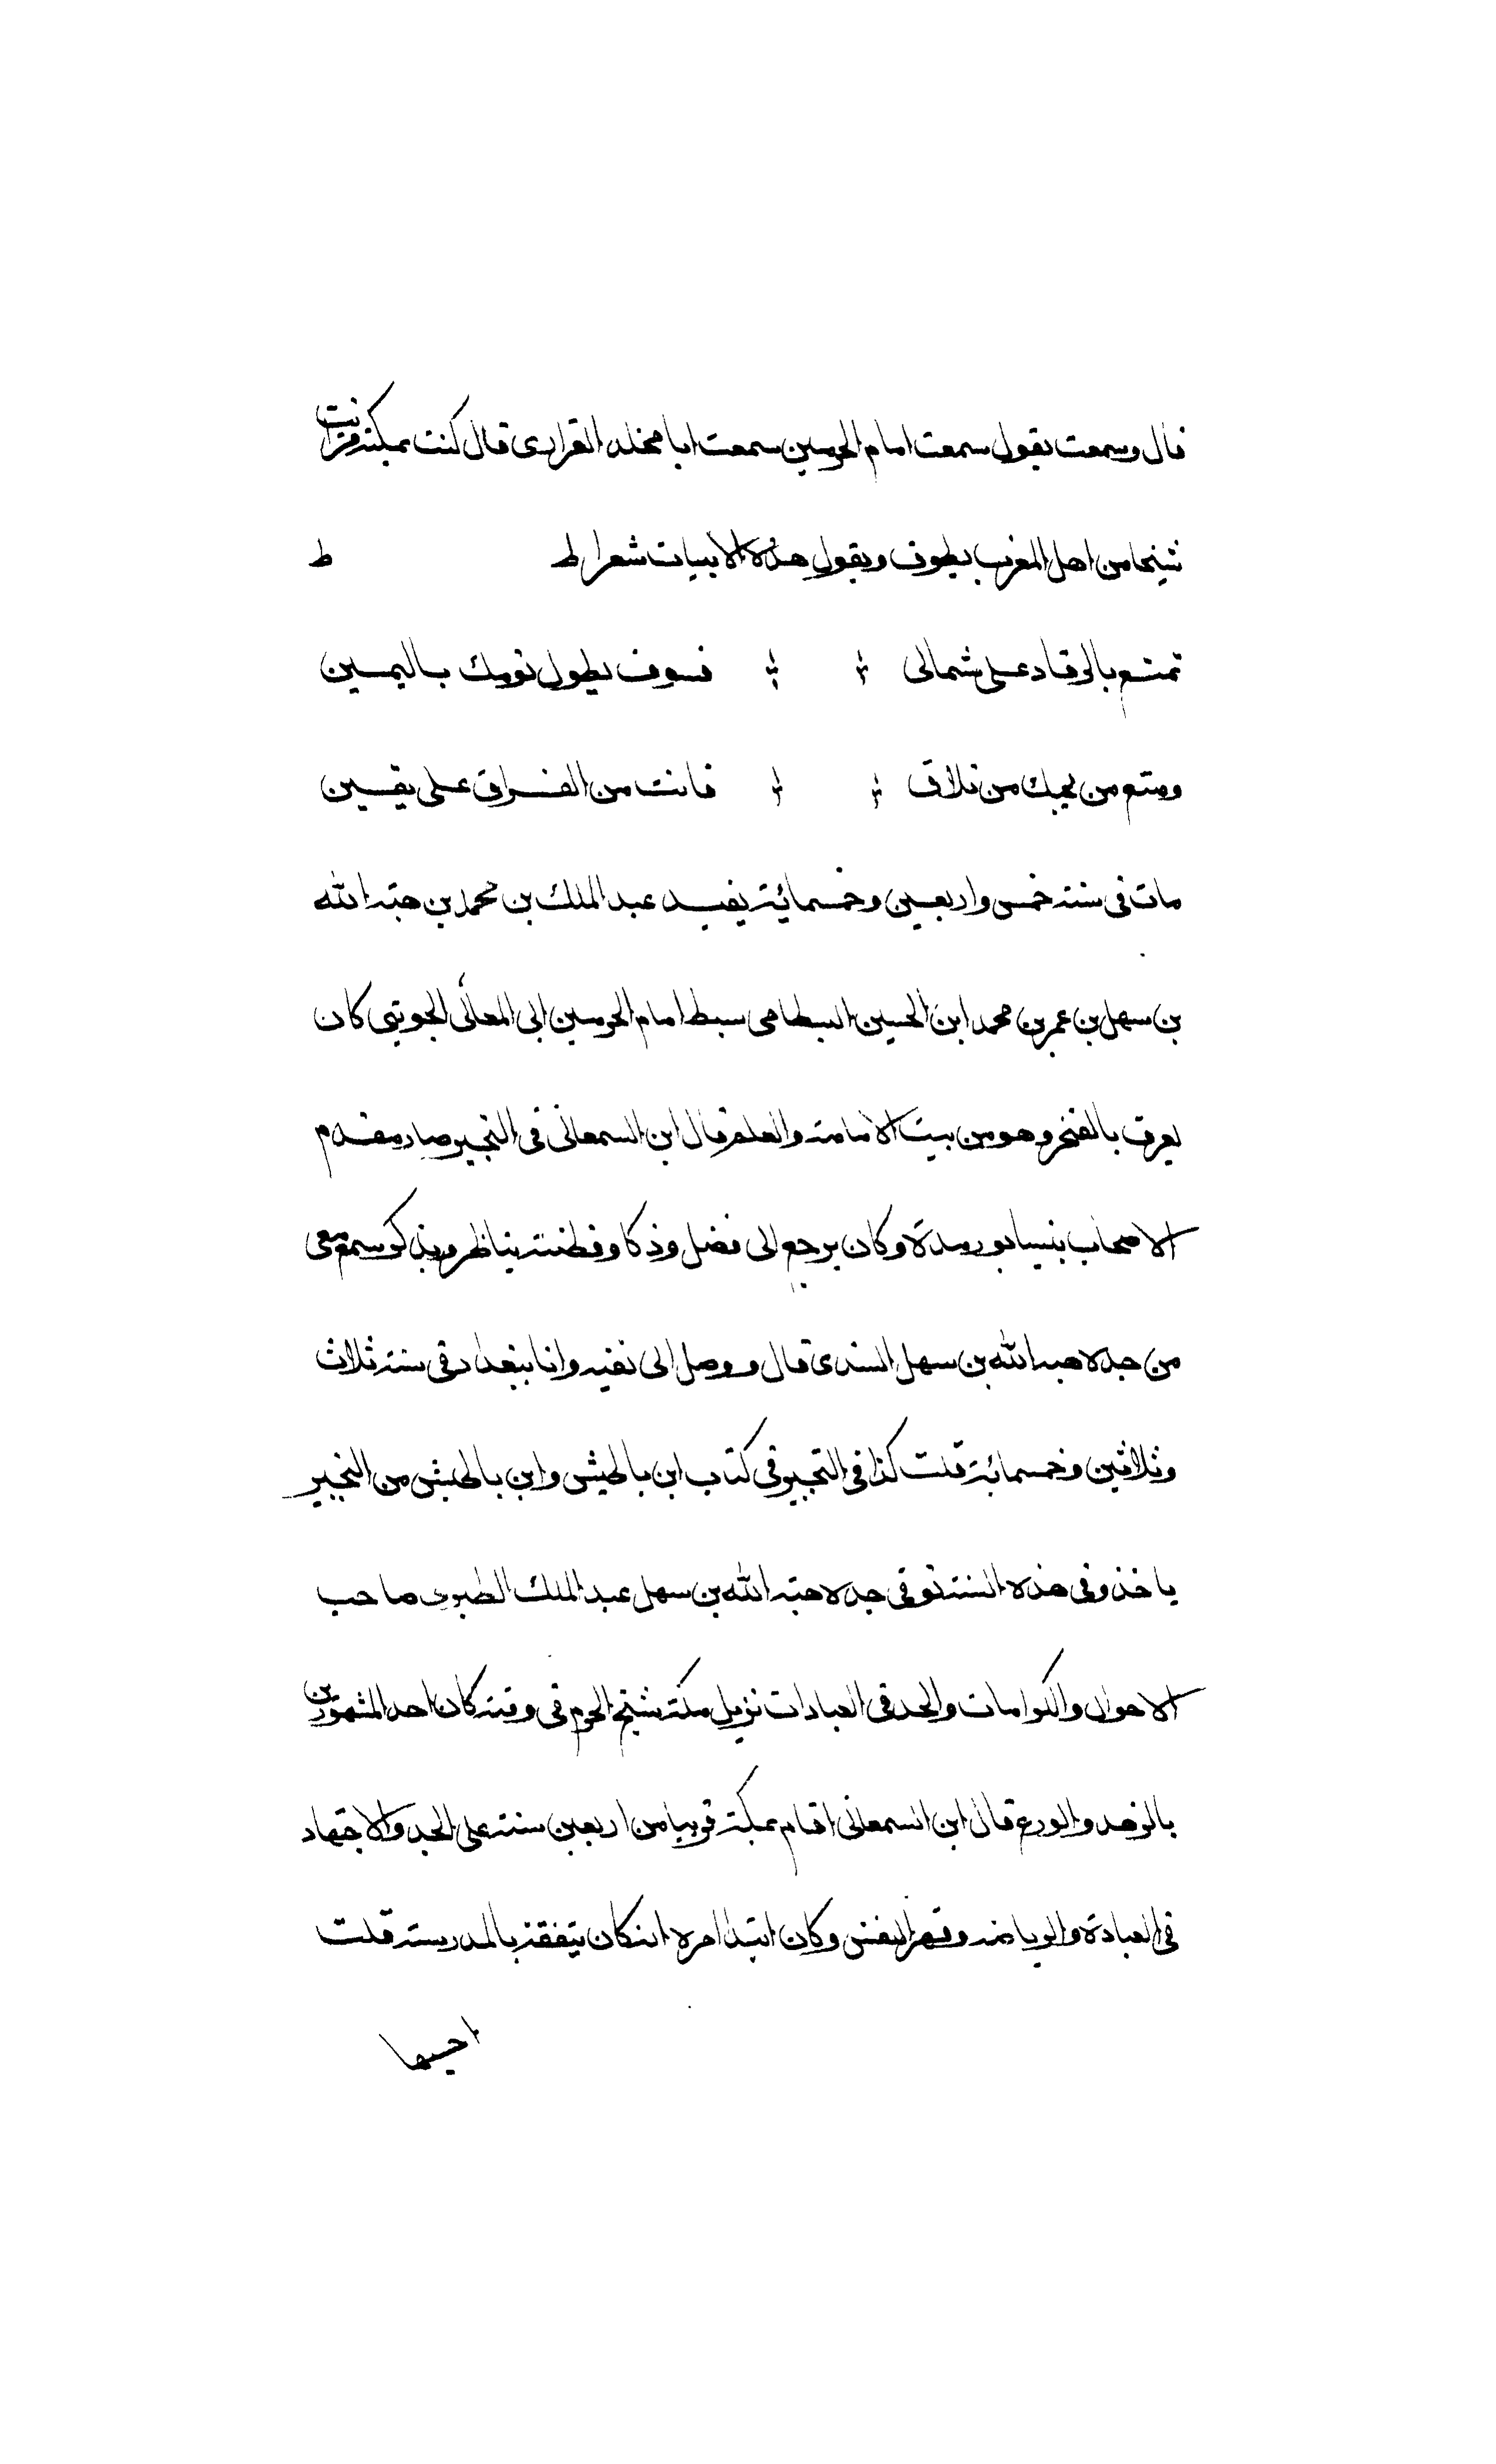 قال وسمعت يقول سمعت امام الحرمين سمعت ابا مخلد القراري قال كنت بمكة فرانيت
شيخا من اهل المغرب يطوف ويقول هذه الابيات شعرا ط ط
تمتع بالرقاد على شمالي فسوف يطول نومك باليمين
ومتع من يحبك من تلاق فانت من الفراق على يقين
مات في سنة خمس واربعين وخمسمائة يفيد عبد الملك بن محمد بن هبة الله
بن سهل بن عمر بن محمد ابن الحسين البسطامي سبط امام الحرمين ابي المعالي الجويني كان
يعرف بالفخر وهو من بيت الامامة والعلم قال ابن السمعاني في التحبير صار مقدم
الاصحاب بنيسابور مدة وكان يرجع الى فضل وذكا وفطنة يناظر ويذكر سمع معي
من جده هبة الله بن سهل السندي قال ووصل الى نعيه وانا ببغداد في سنة ثلاث
وثلاثين وخمسمائة قلت كذا في التحبير في كتاب ابن بالحيش وابن بالحبش من التحبير
ياخذ وفي هذه السنة توفي جده هبة الله بن سهل عبد الملك الطبري صاحب
الاحوال والكرامات والجد في العبادات نزيل مكة شيخ الحرم في وقته كان احد المشهورين
بالزهد والورع قال ابن السمعاني اقام بمكة قريبا من اربعين سنة على الجد والاجتهاد
في العبادة والرياضة وقهر النفس وكان ابتدا امره انه كان يتفقه بالمدرسة قلت
احسبها